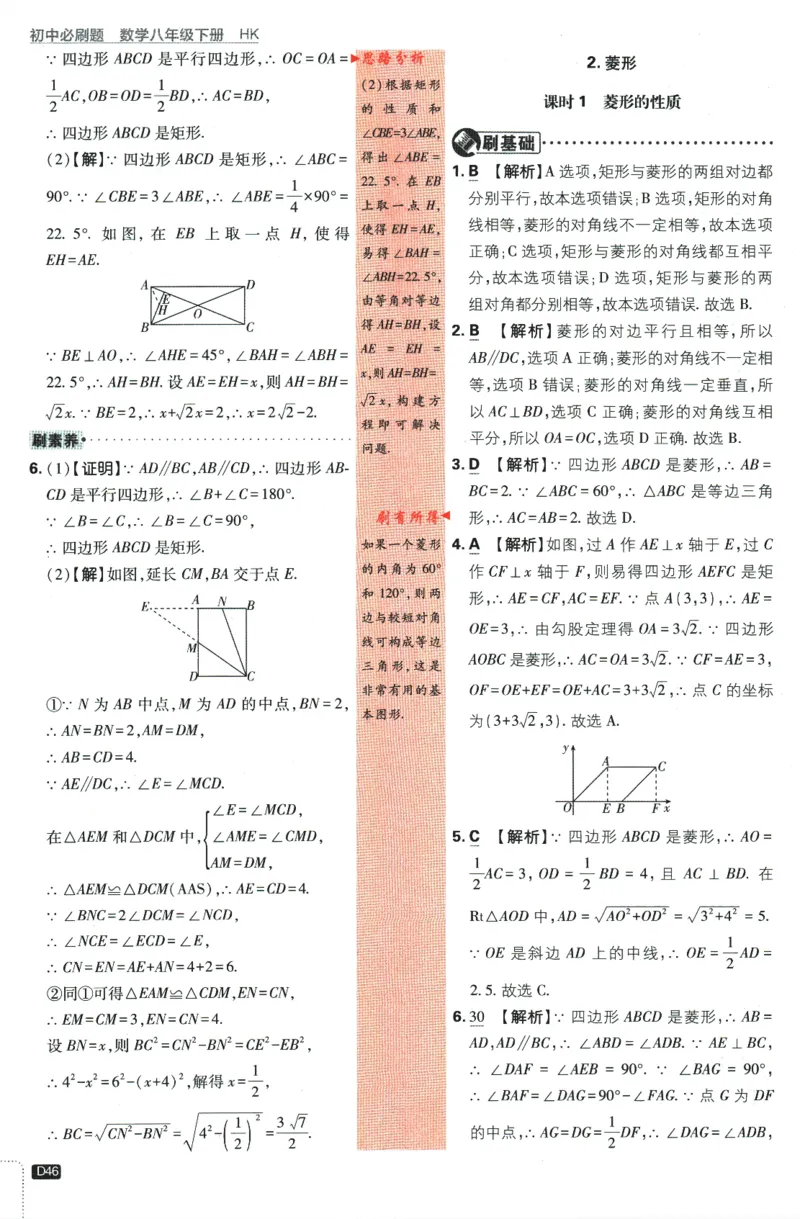 初中必刷题 数学八年级下册 HK
∵ 四边形 ABCD 是平行四边形,∴ OC=OA=
1/2 AC,OB=OD=1/2 BD,∴ AC=BD,
∴ 四边形 ABCD 是矩形.
(2)【解】∵ 四边形 ABCD 是矩形,∴ ∠ABC=
90°. ∵ ∠CBE=3∠ABE,∴ ∠ABE=1/4×90°=
22. 5°. 如图, 在 EB 上取一点 H, 使得
EH=AE.
A D
E
H O
B C
∵ BE⊥AO,∴ ∠AHE=45°,∠BAH=∠ABH=
22.5°,∴ AH=BH. 设 AE=EH=x,则 AH=BH=
√2x. ∵ BE=2,∴ x+√2x=2,∴ x=2√2-2.
刷素养
6. (1)【证明】∵ AD∥BC,AB∥CD,∴ 四边形 AB-
CD 是平行四边形,∴ ∠B+∠C=180°.
∵ ∠B=∠C,∴ ∠B=∠C=90°,
∴ 四边形 ABCD 是矩形.
(2)【解】如图,延长 CM,BA 交于点 E.
E A N B
M
D C
①∵ N 为 AB 中点,M 为 AD 的中点,BN=2,
∴ AN=BN=2,AM=DM,
∴ AB=CD=4.
∵ AE∥DC,∴ ∠E=∠MCD.
∠E=∠MCD,
在△AEM 和△DCM 中,{∠AME=∠CMD,
AM=DM,
∴ △AEM≌△DCM(AAS),∴ AE=CD=4.
∵ ∠BNC=2∠DCM=∠NCD,
∴ ∠NCE=∠ECD=∠E,
∴ CN=EN=AE+AN=4+2=6.
②同①可得△EAM≌△CDM,EN=CN,
∴ EM=CM=3,EN=CN=4.
设 BN=x,则 BC²=CN²-BN²=CE²-EB²,
∴ 4²-x²=6²-(x+4)²,解得 x=1/2,
∴ BC=√(CN²-BN²)=√(4²-(1/2)²)=3√7/2.
D46
思路分析
(2)根据矩形
的性质和
∠CBE=3∠ABE,
得出∠ABE=
22.5°. 在 EB
上取一点 H,
使得 EH=AE,
易得∠BAH=
∠ABH=22.5°,
由等角对等边
得 AH=BH,设
AE = EH =
x,则AH=BH=
√2x, 构建方
程即可解决
问题.
刷有所得
如果一个菱形
的内角为 60°
和 120°,则两
边与较短对角
线可构成等边
三角形,这是
非常有用的基
本图形.
2. 菱形
课时1 菱形的性质
刷基础
1. B 【解析】A 选项,矩形与菱形的两组对边都
分别平行,故本选项错误;B 选项,矩形的对角
线相等,菱形的对角线不一定相等,故本选项
正确;C 选项,矩形与菱形的对角线都互相平
分,故本选项错误;D 选项,矩形与菱形的两
组对角都分别相等,故本选项错误. 故选 B.
2. B 【解析】菱形的对边平行且相等,所以
AB∥DC,选项 A 正确;菱形的对角线不一定相
等,选项 B 错误;菱形的对角线一定垂直,所
以 AC⊥BD,选项 C 正确;菱形的对角线互相
平分,所以 OA=OC,选项 D 正确. 故选 B.
3. D 【解析】∵ 四边形 ABCD 是菱形,∴ AB=
BC=2. ∵ ∠ABC=60°,∴ △ABC 是等边三角
形,∴ AC=AB=2. 故选 D.
4. A 【解析】如图,过 A 作 AE⊥x 轴于 E,过 C
作 CF⊥x 轴于 F,则易得四边形 AEFC 是矩
形,∴ AE=CF,AC=EF. ∵ 点 A(3,3),∴ AE=
OE=3,∴ 由勾股定理得 OA=3√2. ∵ 四边形
AOBC 是菱形,∴ AC=OA=3√2. ∵ CF=AE=3,
OF=OE+EF=OE+AC=3+3√2,∴ 点 C 的坐标
为(3+3√2,3). 故选 A.
y
A C
O E B F x
5. C 【解析】∵ 四边形 ABCD 是菱形,∴ AO=
1/2 AC=3, OD=1/2 BD=4, 且 AC⊥BD. 在
Rt△AOD 中,AD=√(AO²+OD²)=√(3²+4²)=5.
∵ OE 是斜边 AD 上的中线,∴ OE=1/2 AD=
2.5. 故选 C.
6. 30 【解析】∵ 四边形 ABCD 是菱形,∴ AB=
AD,AD∥BC,∴ ∠ABD=∠ADB. ∵ AE⊥BC,
∴ ∠DAF=∠AEB=90°. ∵ ∠BAG=90°,
∴ ∠BAF=∠DAG=90°-∠FAG. ∵ 点 G 为 DF
的中点,∴ AG=DG=1/2 DF,∴ ∠DAG=∠ADB,